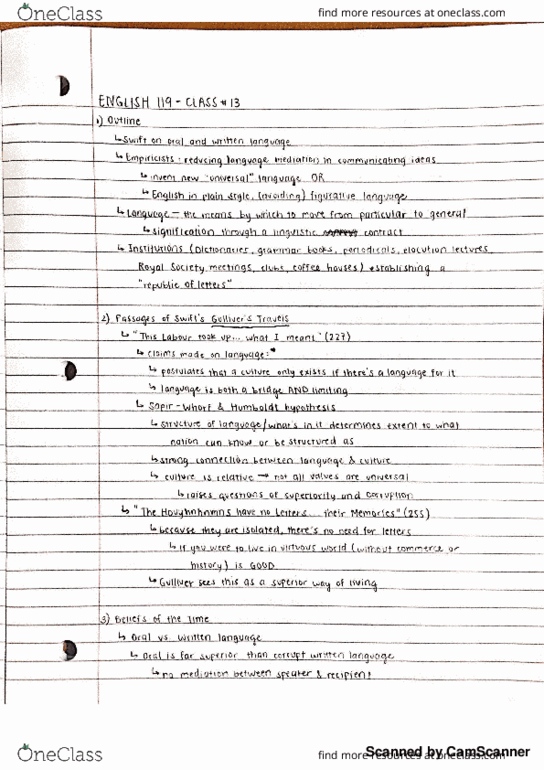 OneClass
find more resources at oneclass.com
ENGLISH 119 - CLASS #13
1) Outline
↳ Swift on oral and written language
↳ Empiricists: reducing language mediation in communicating ideas
↳ invent new "universal" language OR
↳ English in plain style, (avoiding) figurative language
↳ Language — the means by which to move from particular to general
↳ signification through a linguistic contract
↳ Institutions (Dictionaries, grammar books, periodicals, elocution lectures,
Royal Society meetings, clubs, coffee houses) establishing a
"republic of letters"
2) Passages of Swift's Gulliver's Travels
↳ "This Labour took up... what I meant" (227)
↳ claims made on language:*
↳ postulates that a culture only exists if there's a language for it
↳ language is both a bridge AND limiting
↳ Sapir-Whorf & Humboldt hypothesis
↳ structure of language/what's in it determines extent to what
nation can know or be structured as
↳ strong connection between language & culture
↳ culture is relative → not all values are universal
↳ raises questions of superiority and corruption
↳ "The Houyhnhnms have no Letters... their Memories" (255)
↳ because they are isolated, there's no need for letters
↳ if you were to live in virtuous world (without commerce or
history) is GOOD
↳ Gulliver sees this as a superior way of living
3) Beliefs of the time
↳ Oral vs. written language
↳ Oral is far superior than corrupt written language
↳ no mediation between speaker & recipient
Scanned by CamScanner
OneClass
find more resources at oneclass.com